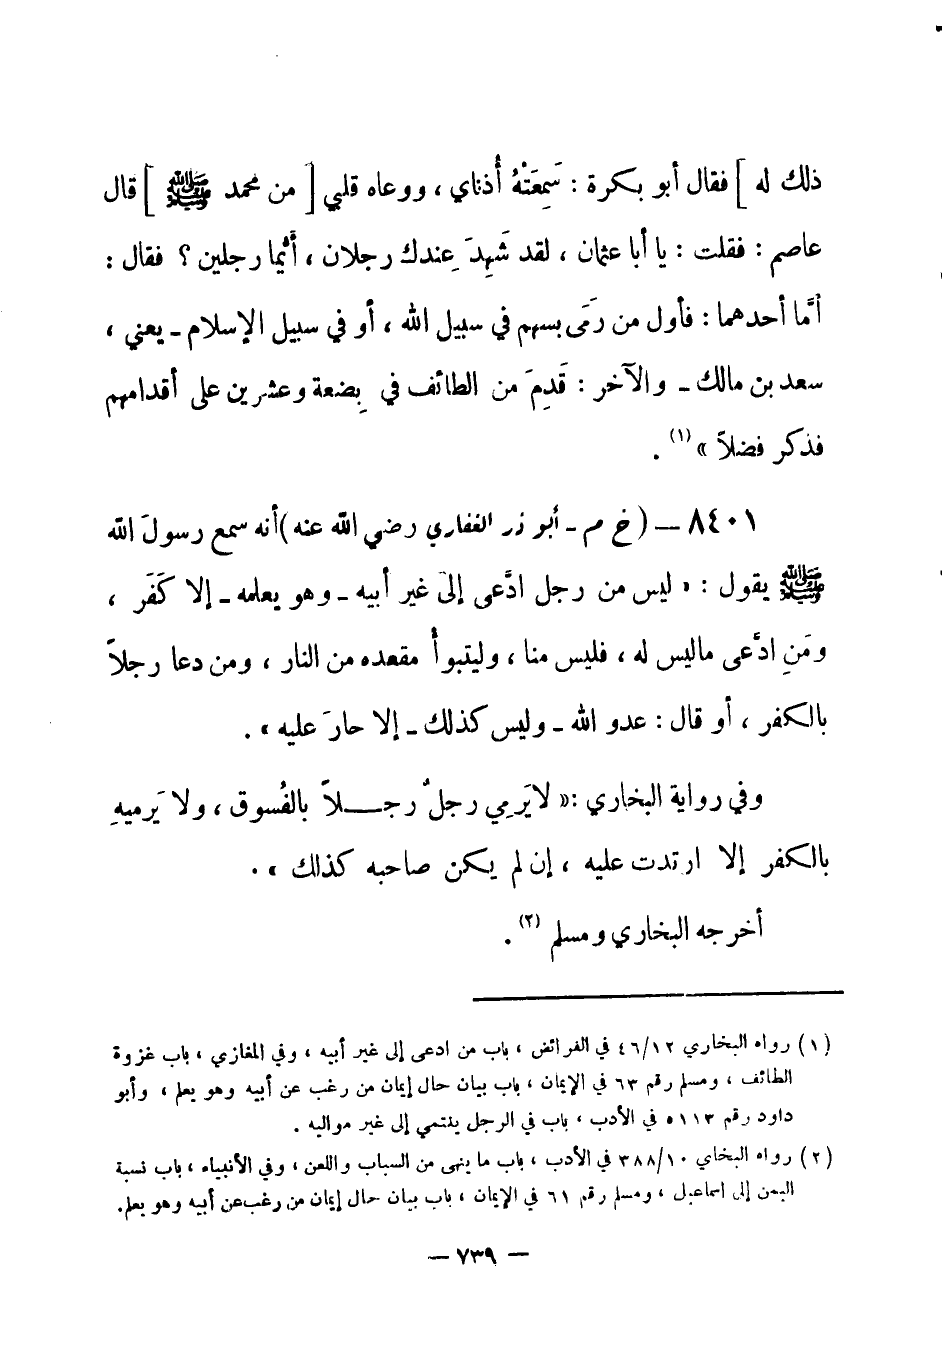 ذلك له ] فقال أبو بكرة : سَمِعَتْهُ أُذناي ، ووعاه قلبي [ من محمد ﷺ ] قال
عاصم : فقلت : يا أبا عثمان ، لقد شَهِدَ عندك رجلان ، أَيُّما رجلين ؟ فقال :
أمَّا أحدهما : فأول من رَمَى بسهم في سبيل الله ، أو في سبيل الإسلام ـ يعني ،
سعد بن مالك ـ والآخر : قَدِمَ من الطائف في بِضعة وعشرين على أقدامهم
فذكر فضلاً » (١) .
٨٤٠١ – ( خ م ـ أبو ذر الغفاري رضي الله عنه ) أنه سمع رسولَ الله
ﷺ يقول : « ليس من رجل ادَّعى إلى غير أبيه ـ وهو يعلمه ـ إلا كَفَر ،
ومَنِ ادَّعى ماليس له ، فليس منا ، وليتبوأْ مقعده من النار ، ومن دعا رجلاً
بالكفر ، أو قال : عدو الله ـ وليس كذلك ـ إلا حارَ عليه » .
وفي رواية البخاري :« لايَرمِي رجلٌ رجـــلاً بالفُسوق ، ولا يَرميهِ
بالكفر إلا ارتدت عليه ، إن لم يكن صاحبه كذلك » .
أخرجه البخاري ومسلم (٢) .
(١) رواه البخاري ٤٦/١٢ في الفرائض ، باب من ادعى إلى غير أبيه ، وفي المغازي ، باب غزوة
الطائف ، ومسلم رقم ٦٣ في الإيمان ، باب بيان حال إيمان من رغب عن أبيه وهو يعلم ، وأبو
داود رقم ٥١١٣ في الأدب ، باب في الرجل ينتمي إلى غير مواليه .
(٢) رواه البخاي ٣٨٨/١٠ في الأدب ، باب ما ينهى من السباب واللعن ، وفي الأنبياء ، باب نسبة
اليمن إلى اسماعيل ، ومسلم رقم ٦١ في الإيمان ، باب بيان حال إيمان من رغب عن أبيه وهو يعلم.
– ٧٣٩ –